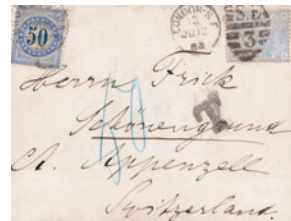 50
LONDON·S.E.
12
JU 12
83
S.E.
3
Herrn Frick
Schönengrund
Ct. Appenzell
Switzerland.